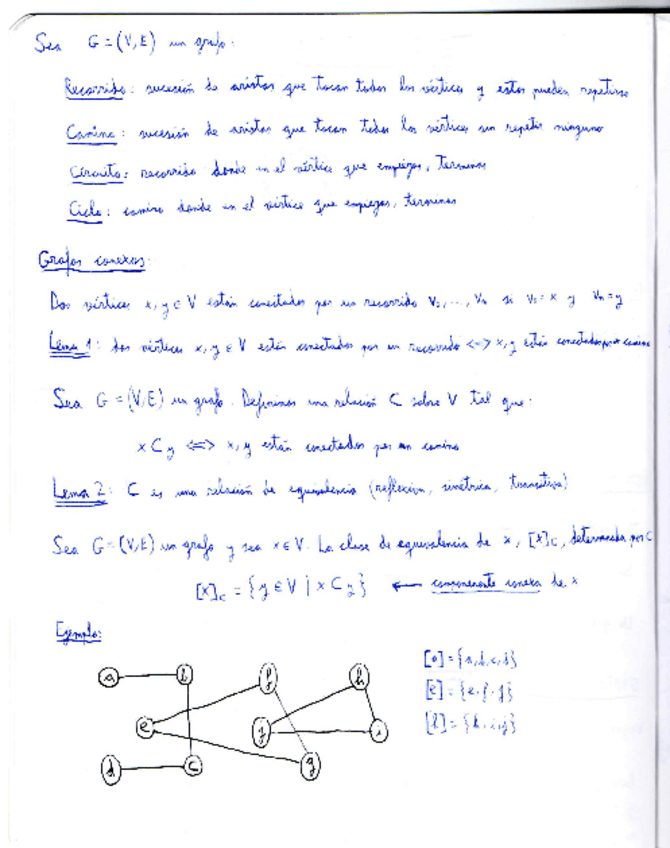 Sea G = (V, E) un grafo:
Recorrido: sucesión de aristas que tocan todos los vértices y estos pueden repetirse
Camino: sucesión de aristas que tocan todos los vértices sin repetir ninguno
Circuito: recorrido donde en el vértice que empiezas, terminas
Ciclo: camino donde en el vértice que empiezas, terminas
Grafos conexos:
Dos vértices x, y ∈ V están conectados por un recorrido v₁, ..., vₙ si v₁ = x y vₙ = y
Lema 1: dos vértices x, y ∈ V están conectados por un recorrido <=> x, y están conectados por un camino
Sea G = (V, E) un grafo. Definimos una relación C sobre V tal que:
x C y <=> x, y están conectados por un camino
Lema 2: C es una relación de equivalencia (reflexiva, simétrica, transitiva)
Sea G = (V, E) un grafo y sea x ∈ V. La clase de equivalencia de x, [x]c, determinada por C
[x]c = {y ∈ V | x C y} ← componente conexa de x
Ejemplo:
a b f h
e j i
d c g
[a] = {a, b, c, d}
[e] = {e, f, g}
[h] = {h, i, j}